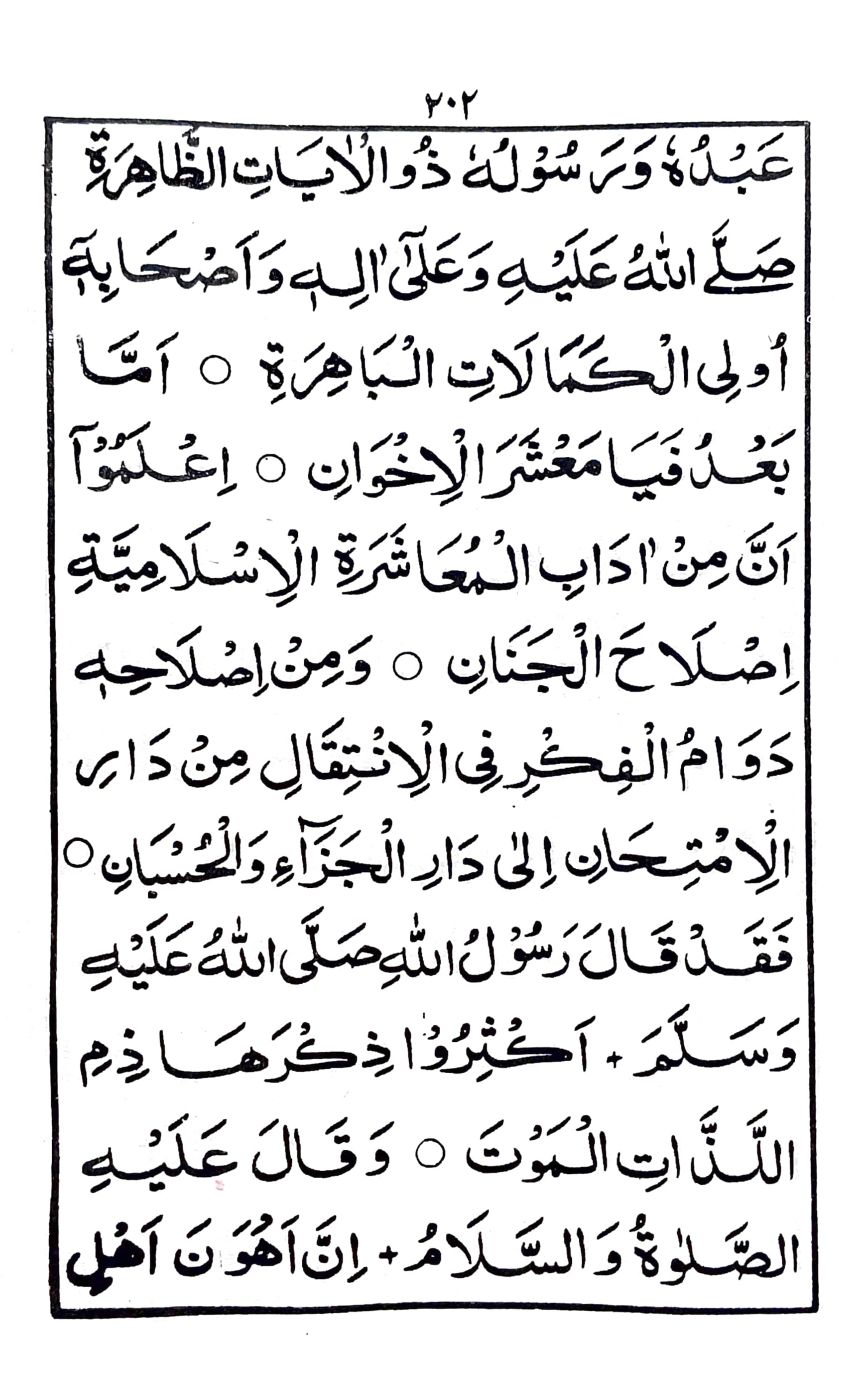 ٢٠٢
عَبْدُهٗ وَرَسُوْلُهٗ ذُو الْاٰيَاتِ الظَّاهِرَةِ
صَلَّے اللهُ عَلَيْهِ وَعَلٰٓى اٰلِهٖ وَاَصْحَابِهٖٓ
اُولِى الْكَمَالَاتِ الْبَاهِرَةِ ○ اَمَّا
بَعْدُ فَيَا مَعْشَرَ الْاِخْوَانِ ○ اِعْلَمُوْٓا
اَنَّ مِنْ اٰدَابِ الْمُعَاشَرَةِ الْاِسْلَامِيَّةِ
اِصْلَاحَ الْجَنَانِ ○ وَمِنْ اِصْلَاحِهٖ
دَوَامُ الْفِكْرِ فِى الْاِنْتِقَالِ مِنْ دَارِ
الْاِمْتِحَانِ اِلٰى دَارِ الْجَزَآءِ وَالْحُسْبَانِ ○
فَقَدْ قَالَ رَسُوْلُ اللهِ صَلَّى اللهُ عَلَيْهِ
وَسَلَّمَ + اَكْثِرُوْا ذِكْرَ هَاذِمِ
اللَّذَّاتِ الْمَوْتَ ○ وَقَالَ عَلَيْهِ
الصَّلٰوةُ وَالسَّلَامُ + اِنَّ اَهْوَنَ اَهْلِ